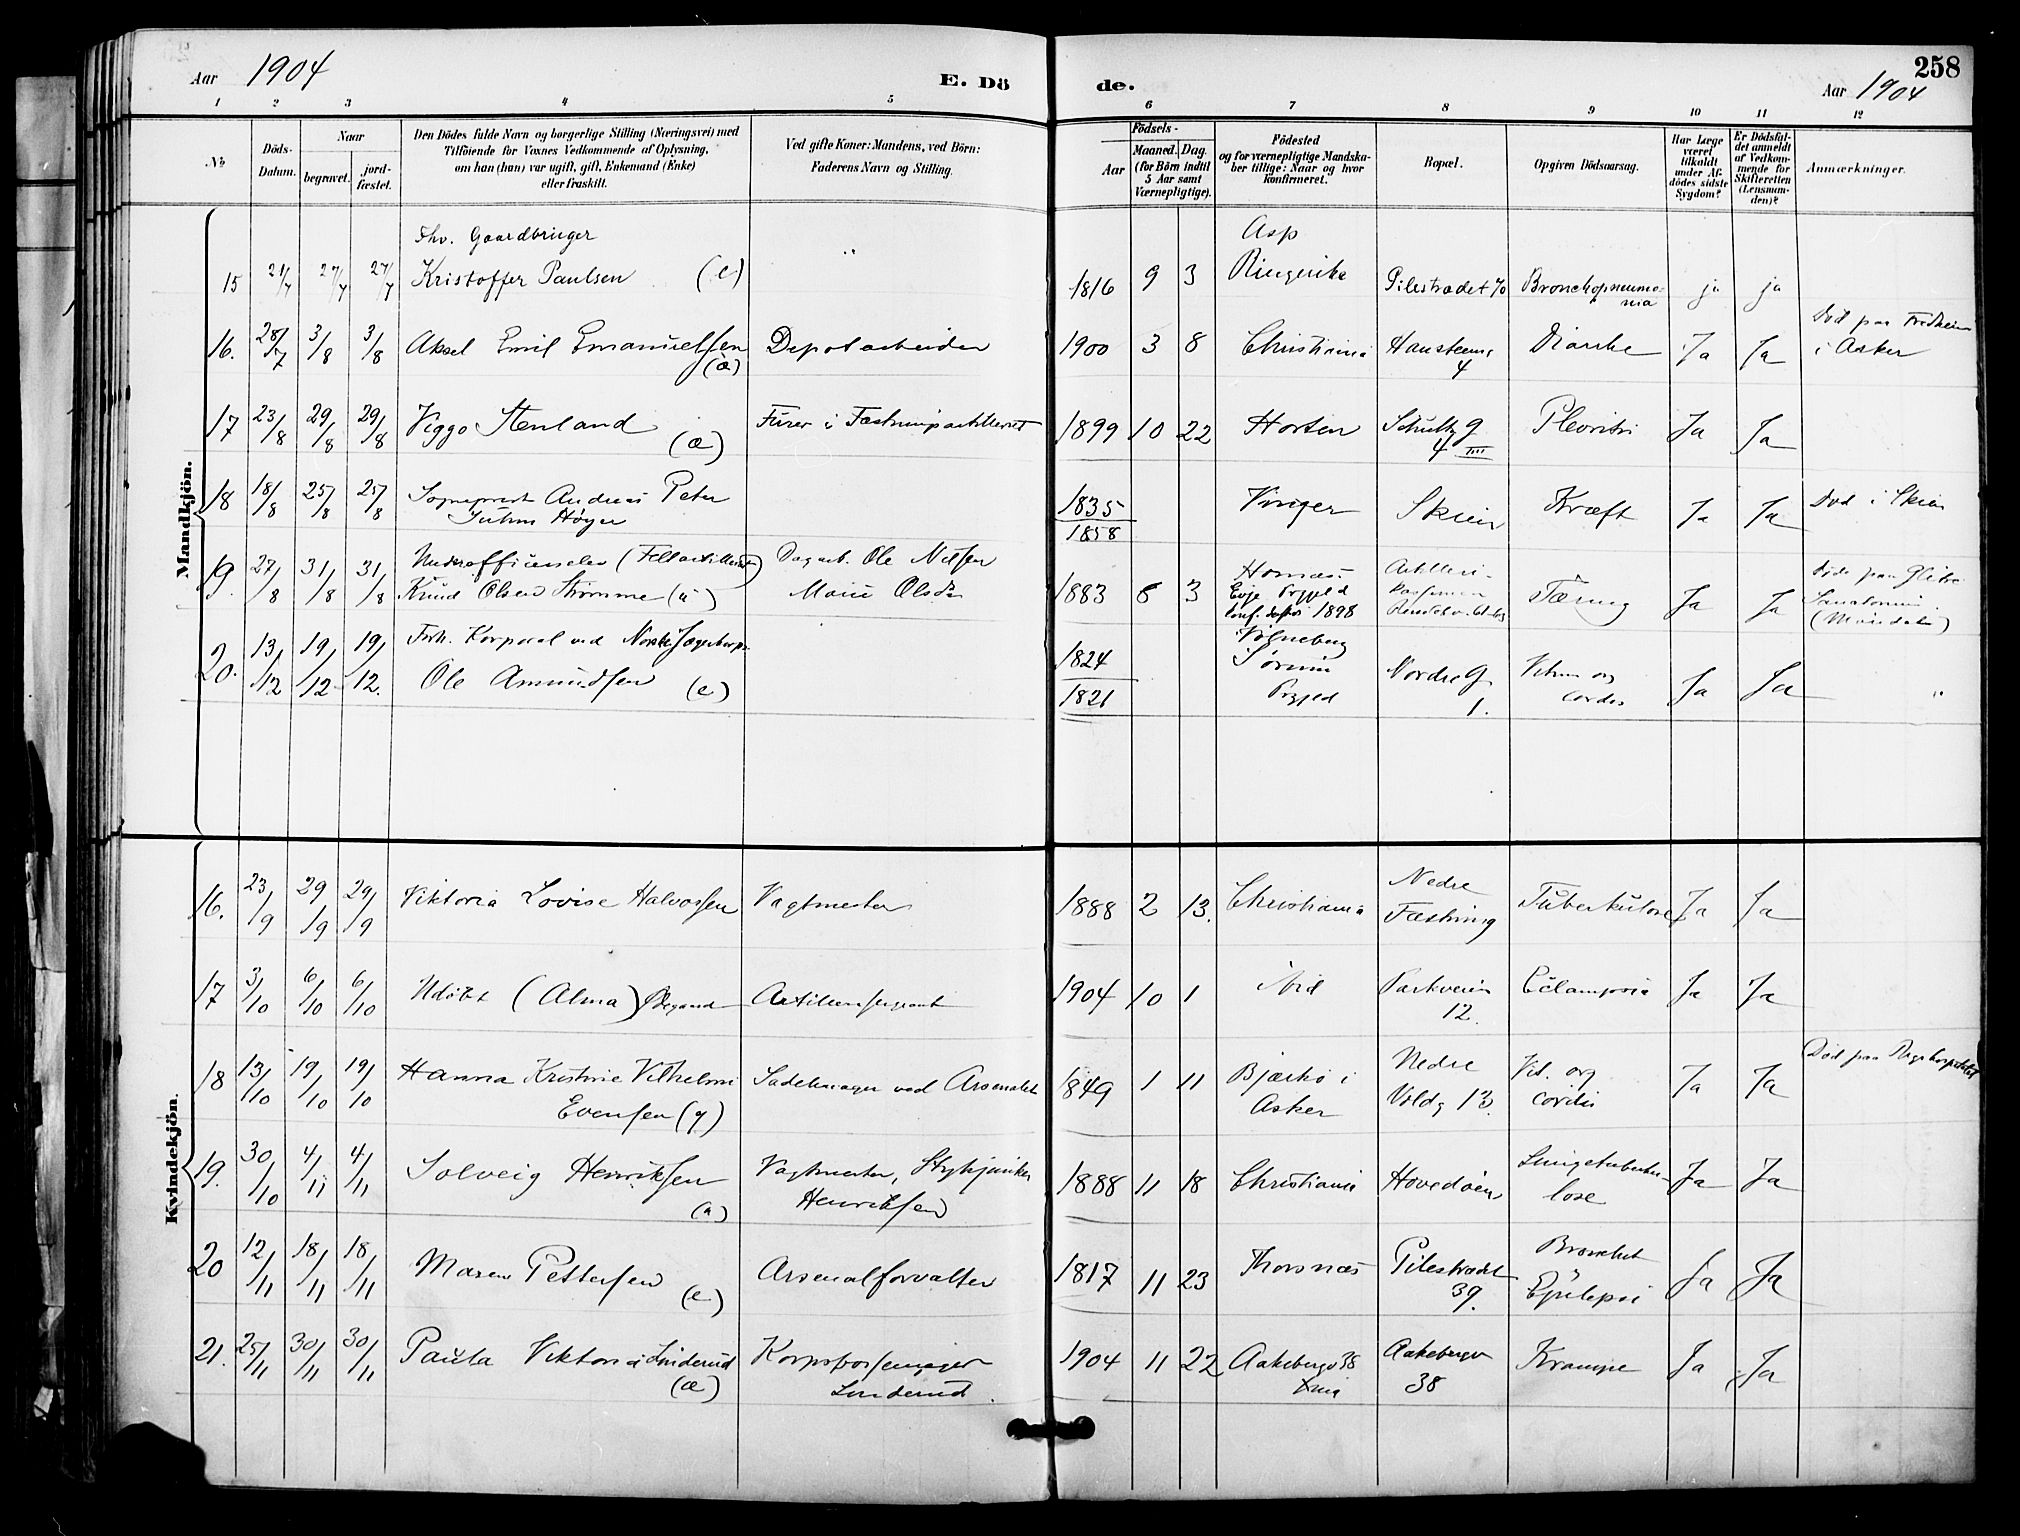 Aar 1904
E. Dö
de.
258
Aar 1904
1 2 3 4 5 6 7 8 9 10 11 12
No
Döds-
Datum.
Naar
begravet.
jord-
fæstet.
Den Dödes fulde Navn og borgerlige Stilling (Næringsvei) med
Tilföiende for Voxnes Vedkommende af Oplysning,
om han (hun) var ugift, gift, Enkemand (Enke)
eller fraskilt.
Ved gifte Koner: Mandens, ved Börn:
Faderens Navn og Stilling.
Födsels-
Aar
Maaned. Dag.
(for Börn indtil
5 Aar samt
Værnepligtige).
Födested
og for værnepligtige Mandska-
ber tillige: Naar og hvor
konfirmeret.
Bopæl.
Opgiven Dödsaarsag.
Har Læge
været
tilkaldt
under Af-
dödes sidste
Sygdom?
Er Dödsfal-
det anmeldt
af Vedkom-
mende for
Skifteretten
(Lensman-
den)?
Anmærkninger.
Mandkjön.
Fhv. Gaardbruger
Asp
15 21/7 27/7 27/7 Kristoffer Paulsen (e) " 1816 9 3 Ringerike Pilestrædet 70 Bronchopneumo-
nia ja ja
16. 28/7 3/8 3/8 Aksel Emil Emanuelsen Depotarbeider 1900 3 8 Christiania Hansteens Diarrhe Ja Ja Död paa Fredheim
(æ) 4 i Asker
17 23/8 29/8 29/8 Viggo Stenland Furer i Fæstningsartilleriet 1899 10 22 Horten Schultzg Pleoritis Ja Ja
(æ) 4 IIII
18 18/8 25/8 25/8 Sogneprest Andreas Peter 1835 Vinger Skien Kræft Ja Ja Död i Skien
Juhus Høyer 1858
19. 27/8 31/8 31/8 Underofficerselev (Feltartilleriet) Dagarb. Ole Nilsen 1883 8 3 Hornæs Artilleri- Tæring Ja Ja Döde paa Glitre
Knud Olsen Strømme (u) Marie Olsdr Evje Prgjeld Sanatorium
Conf. 1898
20. 13/12 19/12 19/12. Forh. Korporal ved Norske Jægerkorps 1824
Ole Amundsen (e) 1821 Sørum Nordre G Vitium org Ja Ja "
Prgjeld 1. cordis
Kvindekjön.
16. 23/9 29/9 29/9 Viktoria Lovise Halvorsen Vagtmester 1888 2 13. Christiania Nedre Tuberkulose Ja Ja
Fæstning
17 3/10 6/10 6/10 Udöbt (Alma) Artillerisergeant 1904 10 1 ibid Parkveien Eclampsia Ja Ja
12.
18 13/10 19/10 19/10 Hanna Kristine Vilhelmi Sadelmager ved Arsenalet 1849 1 11 Bjerkö i Nedre Vit. org Ja Ja Död paa Rigshospitalet
Evensen (g) Asker Voldg 13. cordis
19. 30/10 4/11 4/11 Solveig Henriksen Vagtmester, Stykjunker 1888 11 18 Christiania Hovedöen Lungetuberku- Ja Ja
(u) Henriksen lose
20 12/11 18/11 18/11 Maren Pettersen Arsenalforvalter 1817 11 23 Thorsnæs Pilestrædet Bronchit Ja Ja
(e) 39. Epilepsi
21. 25/11 30/11 30/11 Paula Viktoria Linderud Korpsbössemager 1904 11 22 Aakebergv 38 Aakebergv Krampe Ja Ja
(æ) Linderud. Xnia 38